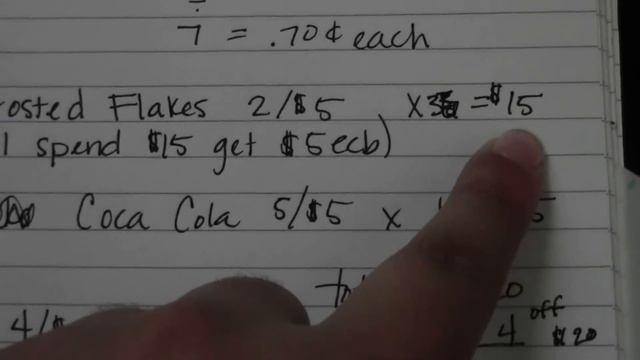 7 = .70¢ each
osted Flakes 2/$5 x3 = $15
spend $15 get $5 ecb)
Coca Cola 5/$5 x
4/$
4 off
$20